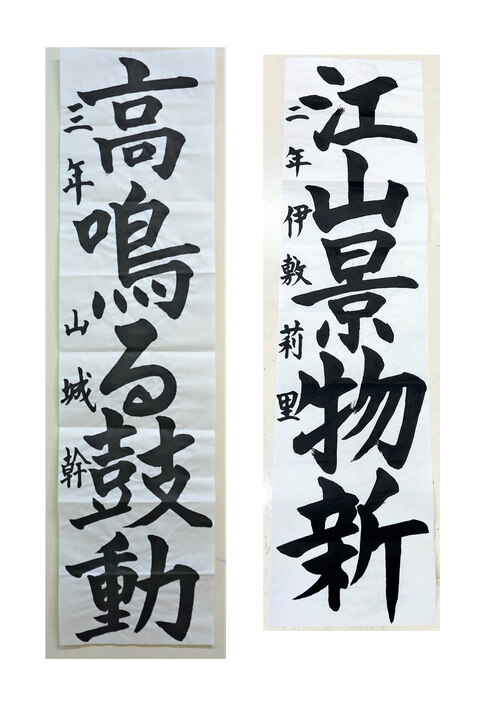 江山景物新
二年 伊敷莉里
高鳴る鼓動
三年 山城幹